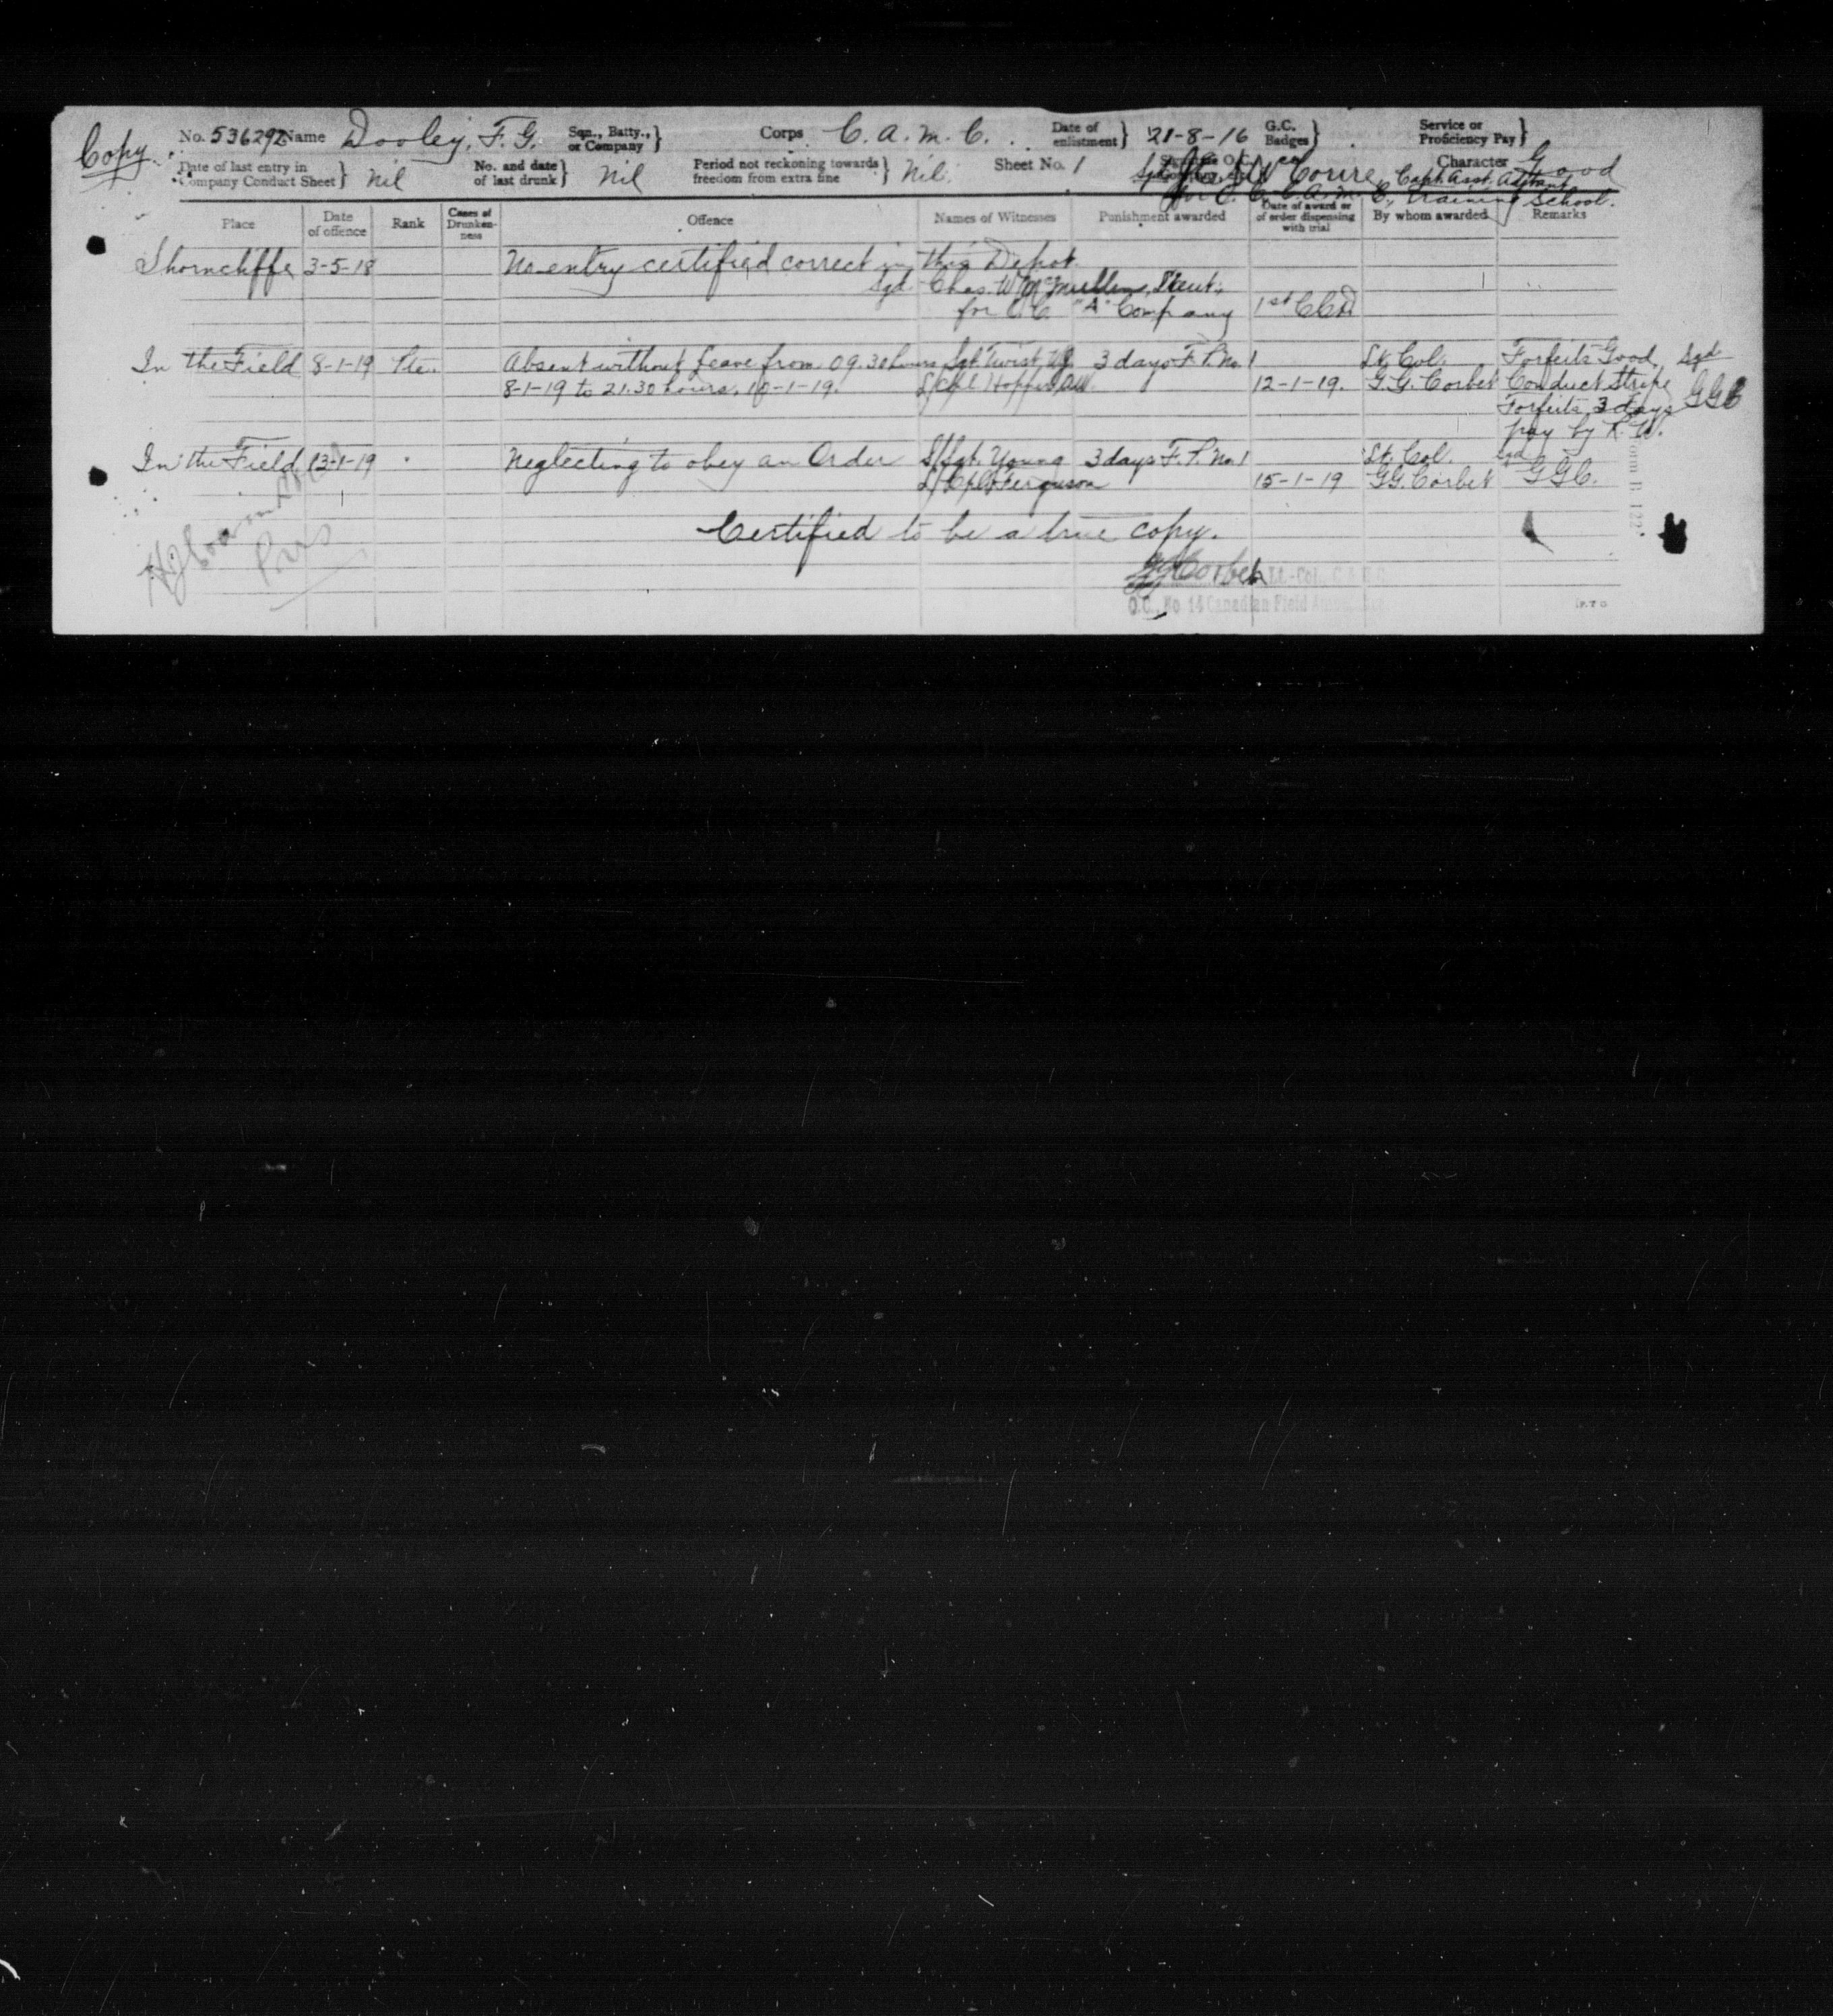 Copy
No. 536292 Name Dooley, F. G. Sqn., Batty., or Company} Corps C. A. M. C. Date of enlistment} 21-8-16 G.C. Badges} Service or Proficiency Pay}
Date of last entry in Company Conduct Sheet} Nil No. and date of last drunk} Nil Period not reckoning towards freedom from extra fine} Nil. Sheet No. 1 Character Good
Capt. Asst. Adjutant
for O. C. C. A. M. C. Training School.
Place Date of offence Rank Cases of Drunkenness Offence Names of Witnesses Punishment awarded Date of award or of order dispensing with trial By whom awarded Remarks
Shorncliffe 3-5-18 No entry certified correct in this Depot.
Sgd. Chas. W. McMullen, Lieut.
for O.C. "A" Company 1st CCD
In the Field 8-1-19 Pte. Absent without leave from 09.30 hours Sgt. Twist, 3 days F. P. No. 1 Lt. Col. Forfeits Good Sgd
8-1-19 to 21.30 hours, 10-1-19. 12-1-19. G. G. Corbet Conduct Stripe GGC
Forfeits 3 days
pay by R. W.
In the Field 13-1-19 " Neglecting to obey an Order S/Sgt. Young 3 days F. P. No 1 Lt. Col. Sgd
L/Cpl Ferguson 15-1-19 GG. Corbet GGC.
Certified to be a true copy.
GGCorbet Lt.-Col.,
O.C., No 14 Canadian Field
P.T.O